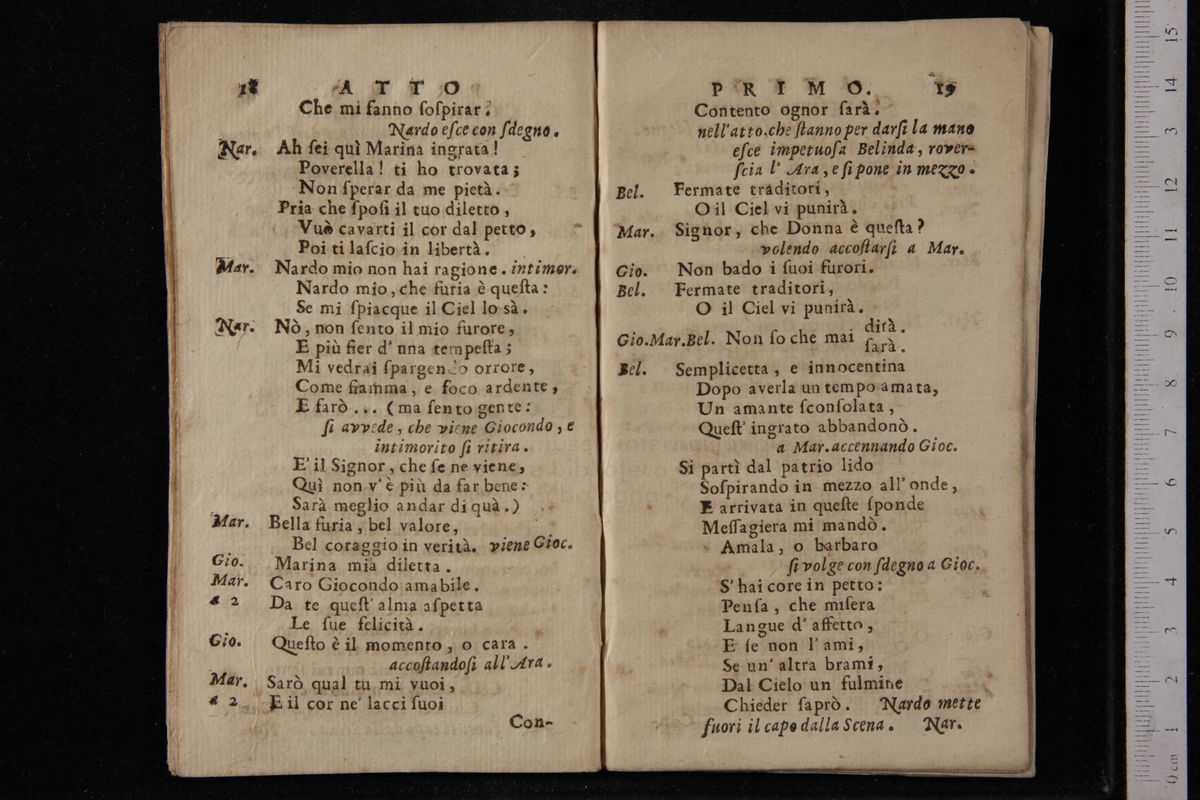 18 ATTO
Che mi fanno ſoſpirar.
Nardo eſce con ſdegno.
Nar. Ah ſei quì Marina ingrata!
Poverella! ti ho trovata;
Non ſperar da me pietà.
Pria che ſpoſi il tuo diletto,
Vuò cavarti il cor dal petto,
Poi ti laſcio in libertà.
Mar. Nardo mio non hai ragione. intimor.
Nardo mio, che furia è queſta:
Se mi ſpiacque il Ciel lo sà.
Nar. Nò, non ſento il mio furore,
E più fier d' una tempeſta;
Mi vedrai ſpargendo orrore,
Come fiamma, e foco ardente,
E farò... (ma ſento gente:
ſi avvede, che viene Giocondo, e
intimorito ſi ritira.
E' il Signor, che ſe ne viene,
Quì non v' è più da far bene:
Sarà meglio andar di quà.)
Mar. Bella furia, bel valore,
Bel coraggio in verità. viene Gioc.
Gio. Marina mia diletta.
Mar. Caro Giocondo amabile.
a 2 Da te queſt' alma aſpetta
Le ſue felicità.
Gio. Queſto è il momento, o cara.
accoſtandoſi all' Ara.
Mar. Sarò qual tu mi vuoi,
a 2 E il cor ne' lacci ſuoi
Con-
PRIMO. 19
Contento ognor ſarà.
nell' atto, che ſtanno per darſi la mano
eſce impetuoſa Belinda, rover-
ſcia l' Ara, e ſi pone in mezzo.
Bel. Fermate traditori,
O il Ciel vi punirà.
Mar. Signor, che Donna è queſta?
volendo accoſtarſi a Mar.
Gio. Non bado i ſuoi furori.
Bel. Fermate traditori,
O il Ciel vi punirà.
Gio.Mar.Bel. Non ſo che mai dirà.
ſarà.
Bel. Semplicetta, e innocentina
Dopo averla un tempo amata,
Un amante ſconſolata,
Queſt' ingrato abbandonò.
a Mar. accennando Gioc.
Si partì dal patrio lido
Soſpirando in mezzo all' onde,
E arrivata in queſte ſponde
Meſſagiera mi mandò.
Amala, o barbaro
ſi volge con ſdegno a Gioc.
S' hai core in petto:
Penſa, che miſera
Langue d' affetto,
E ſe non l' ami,
Se un' altra brami,
Dal Cielo un fulmine
Chieder ſaprò. Nardo mette
fuori il capo dalla Scena. Nar.